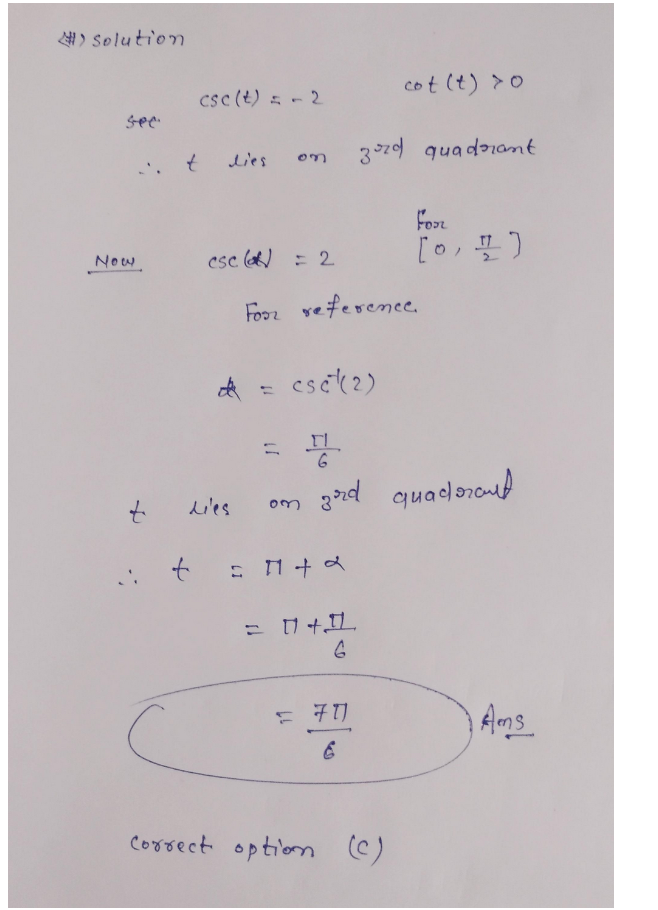 #) solution
csc(t) = -2 cot(t) > 0
see
∴ t lies on 3rd quadrant
For
Now csc(α) = 2 [0, π/2]
For reference
α = csc⁻¹(2)
= π/6
t lies on 3rd quadrant
∴ t = π + α
= π + π/6
= 7π/6 Ans
correct option (c)